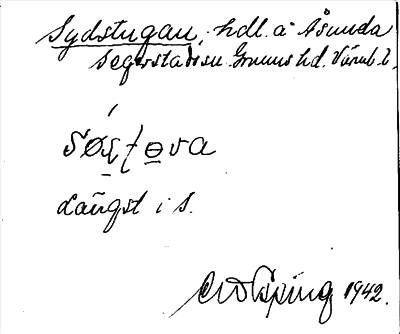 Sydstugan, hdl. å Åsunda
Segerstads sn. Grums hd. Värml. l.
sø̱ʂtɵva
Längst i s.
1942.